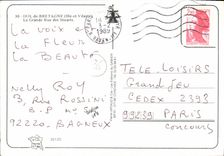 DOL de BRETAGNE (Ille et Vilaine)
La Grande Rue des Stuarts
La voix et
la Fleur
la Beauté
Nelly Roy
3, Rue Rossini
B.P
92220. BAGNEUX
TELE LOISIRS
Grand Jeu
CEDEX 2398
99239 PARIS
Concours